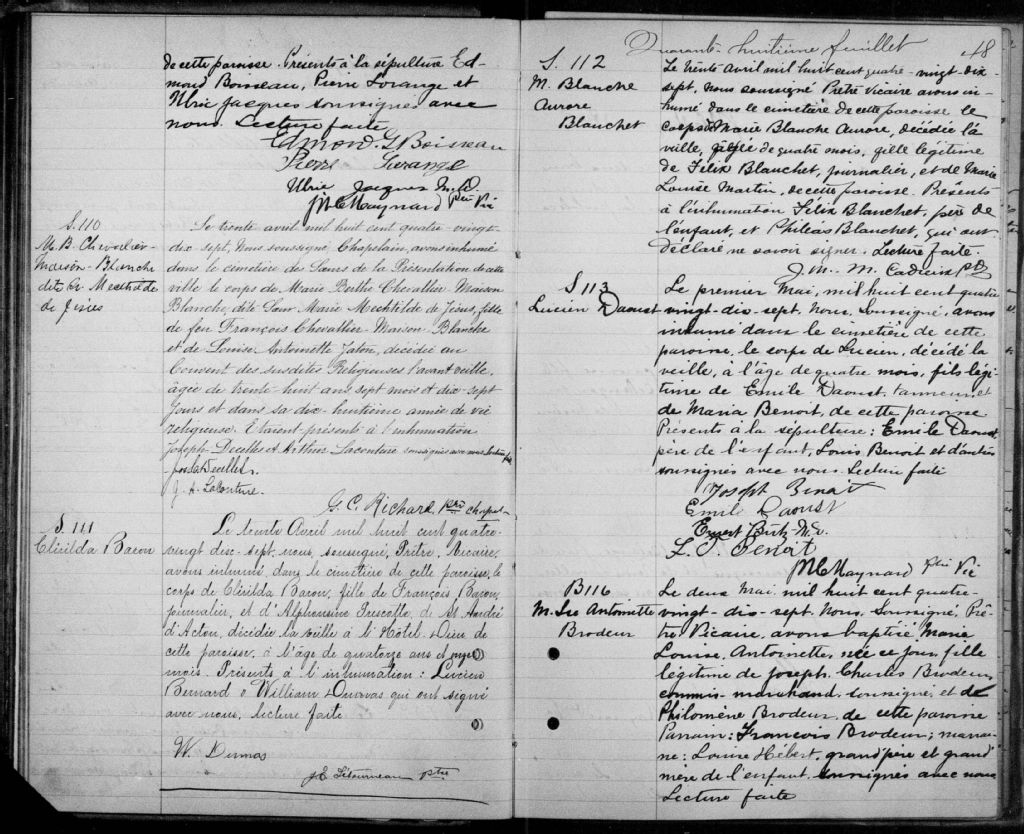 de cette paroisse. Présents à la sépulture Ed-
mond Boisseau, Pierre Lorange et
Ulric Jacques soussignés avec
nous. Lecture faite
Edmond G Boisseau
Pierre Lorange
Ulric Jacques M.D.
J M C Maynard Ptre Vic
S. 110
M. B. Chevalier
Maison-Blanche
dite Sr Mechtilde
de Jésus
Le trente avril mil huit cent quatre-vingt-
dix-sept, Nous soussigné Chapelain, avons inhumé
dans le cimetière des Sœurs de la Présentation de cette
ville le corps de Marie Berthe Chevallier-Maison
Blanche, dite Sœur Marie Mechtilde de Jésus, fille
de feu François Chevallier-Maison-Blanche
et de Louise Antoinette décédée au
Couvent des susdites Religieuses l'avant veille,
âgée de trente huit ans sept mois et dix-sept
jours et dans sa dix-huitième année de vie
religieuse. Etaient présents à l'inhumation
Joseph Decelles et Arthur Lacouture soussignés avec nous. Lecture faite
Jos. Decelles.
J. A. LaCouture.
G. C. Richard Ptre chapel-
S. 111
Clérilda Baron
Le trente Avril mil huit cent quatre-
vingt dix-sept, nous, soussigné, Prêtre, Vicaire,
avons inhumé, dans le cimetière de cette paroisse, le
corps de Clérilda Baron, fille de François Baron,
journalier, et d'Alphonsine de St André
d'Acton, décédée la veille à l'Hôtel-Dieu de
cette paroisse, à l'âge de quatorze ans et
mois. Présents à l'inhumation: Lucien
Bernard & William Dumas qui ont signé
avec nous, lecture faite
W. Dumas
J E Létourneau Ptre
Quarante-huitième feuillet 48
S. 112
M. Blanche
Aurore
Blanchet
Le trente avril mil huit cent quatre-vingt-dix-
sept, nous soussigné Prêtre Vicaire avons in-
humé dans le cimetière de cette paroisse le
corps de Marie Blanche Aurore, décédée la
veille, âgée de quatre mois, fille légitime
de Félix Blanchet, journalier, et de Marie
Louise Martin, de cette paroisse. Présents
à l'inhumation Félix Blanchet, père de
l'enfant, et Philéas Blanchet, qui ont
déclaré ne savoir signer. Lecture faite.
J. M. M. Cadieux Ptr
S 113
Lucien Daoust
Le premier Mai, mil huit cent quatre
vingt-dix-sept, Nous, Soussigné, avons
inhumé dans le cimetière de cette
paroisse, le corps de Lucien, décédé la
veille, à l'âge de quatre mois, fils légi-
time de Emile Daoust, tanneur, et
de Maria Benoit, de cette paroisse
Présents à la sépulture: Emile Daoust
père de l'enfant, Louis Benoit et d'autres
soussignés avec nous. Lecture faite
Joseph Benoit
Emile Daoust
Ernest
L. J. Benoit
J M C Maynard Ptre Vic
B116
M. Ls Antoinette
Brodeur
Le deux Mai, mil huit cent quatre-
vingt-dix-sept, Nous, Soussigné, Prê-
tre Vicaire, avons baptisé Marie
Louise, Antoinette, née ce jour, fille
légitime de Joseph, Charles Brodeur,
commis-marchand, soussigné, et de
Philomène Brodeur, de cette paroisse
Parrain: Francois Brodeur; marrai-
ne: Louise Hébert, grand père et grand
mère de l'enfant, soussignés avec nous
Lecture faite